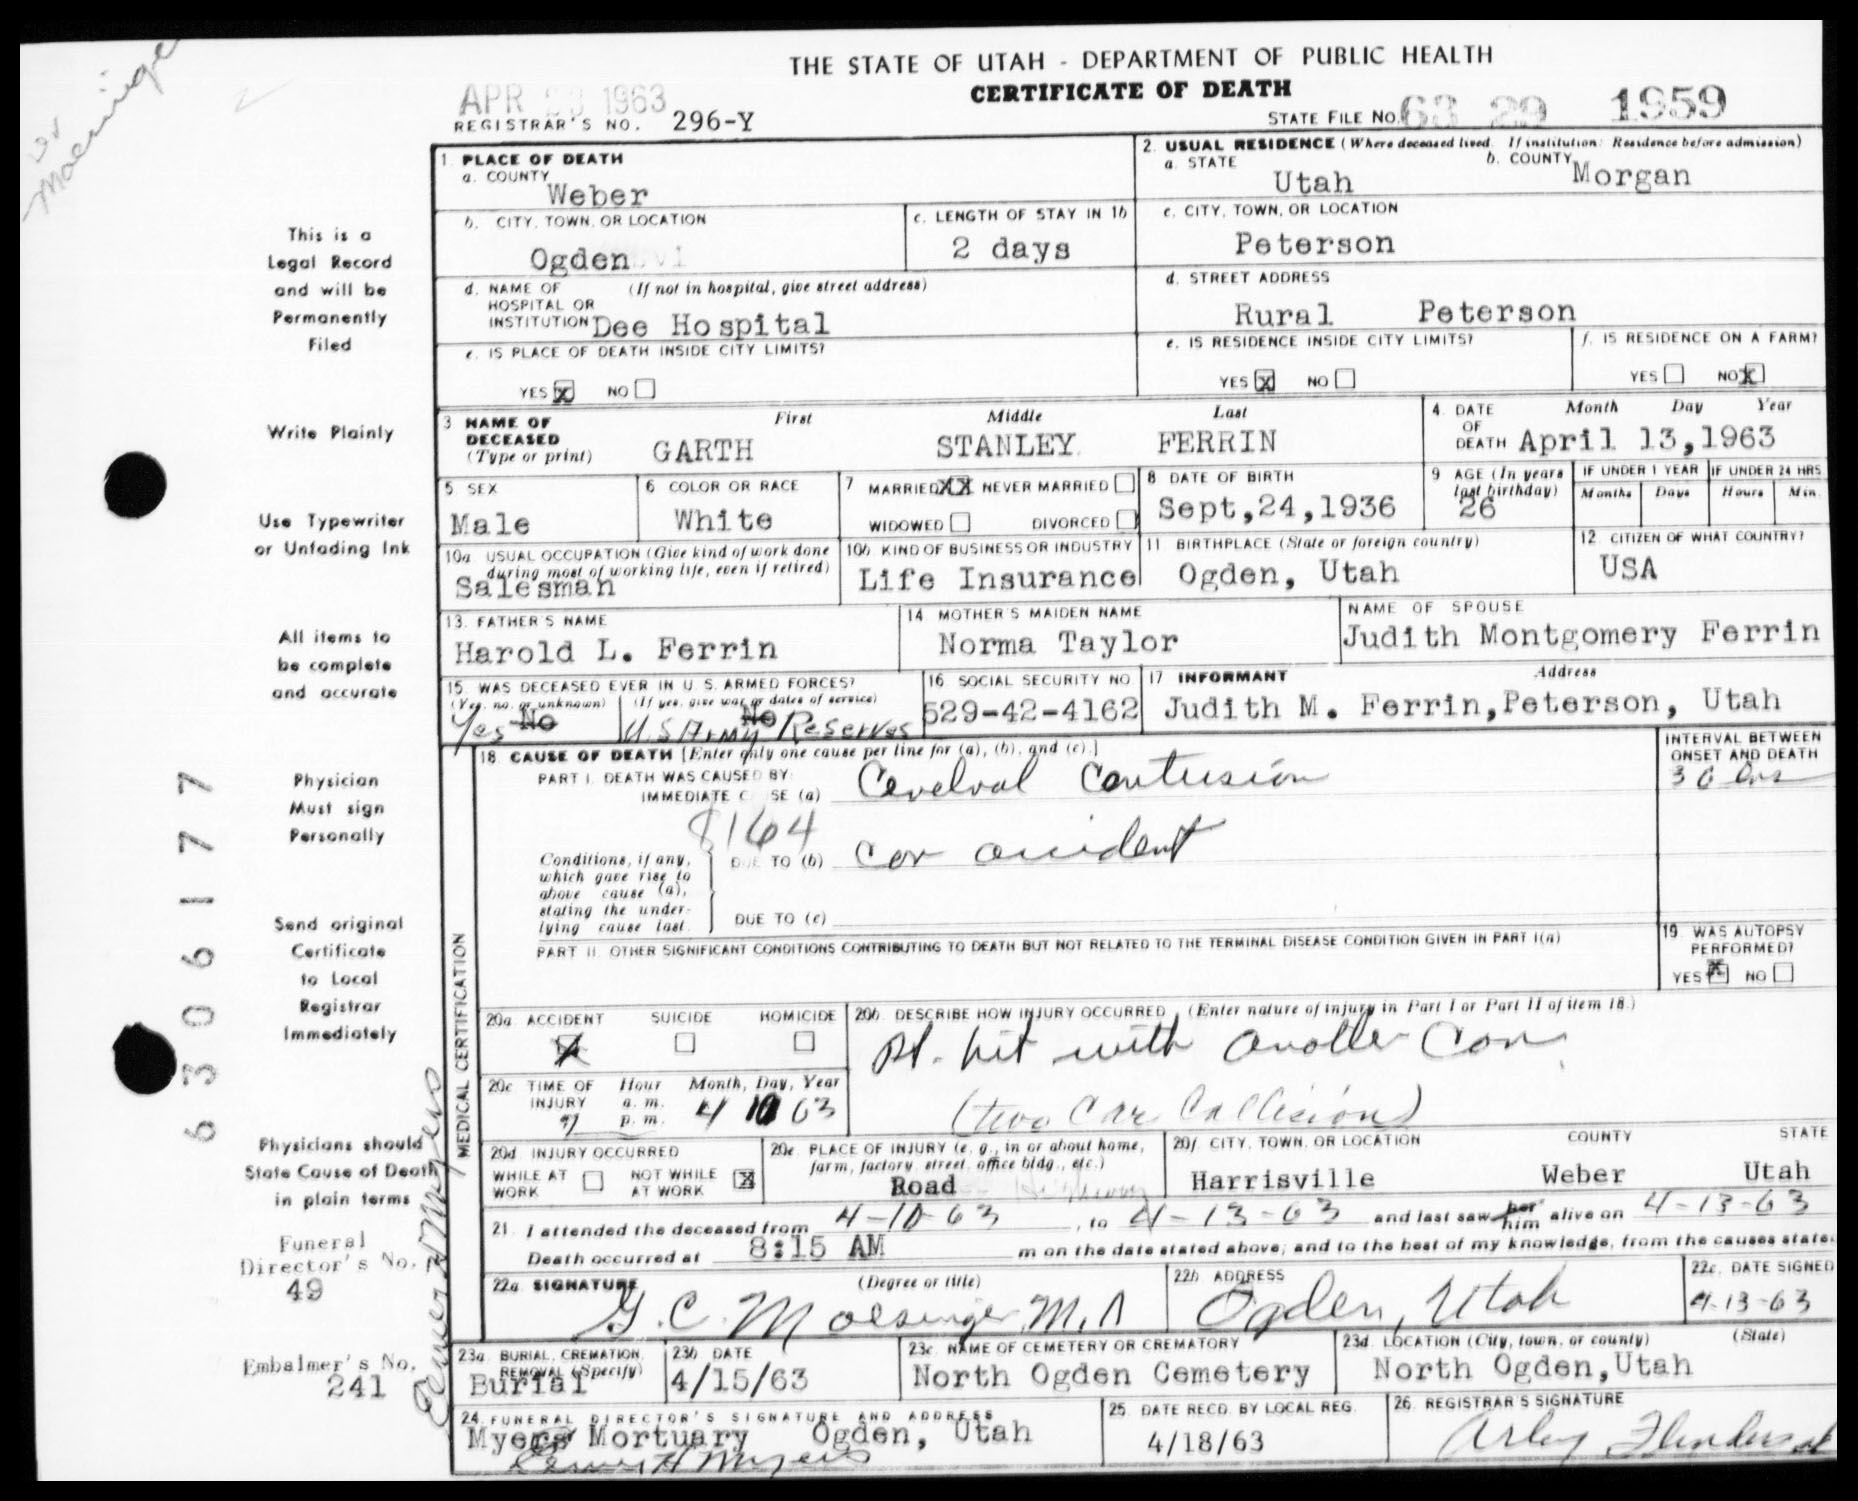 THE STATE OF UTAH - DEPARTMENT OF PUBLIC HEALTH
CERTIFICATE OF DEATH
APR 23 1963
REGISTRAR'S NO. 296-Y
STATE FILE NO. 63 29 1959
This is a
Legal Record
and will be
Permanently
Filed
Write Plainly
Use Typewriter
or Unfading Ink
All items to
be complete
and accurate
Physician
Must sign
Personally
Send original
Certificate
to Local
Registrar
Immediately
Physicians should
State Cause of Death
in plain terms
Funeral
Director's No.
49
Embalmer's No.
241
6306177
Elmer H Myers
1. PLACE OF DEATH
a. COUNTY
Weber
2. USUAL RESIDENCE (Where deceased lived. If institution: Residence before admission)
a. STATE Utah
b. COUNTY Morgan
b. CITY, TOWN, OR LOCATION
Ogden
c. LENGTH OF STAY IN 1b
2 days
c. CITY, TOWN, OR LOCATION
Peterson
d. NAME OF (If not in hospital, give street address)
HOSPITAL OR
INSTITUTION Dee Hospital
d. STREET ADDRESS
Rural Peterson
e. IS PLACE OF DEATH INSIDE CITY LIMITS?
YES X NO
e. IS RESIDENCE INSIDE CITY LIMITS?
YES X NO
f. IS RESIDENCE ON A FARM?
YES NO X
3 NAME OF
DECEASED
(Type or print)
First Middle Last
GARTH STANLEY FERRIN
4. DATE
OF
DEATH
Month Day Year
April 13,1963
5 SEX
Male
6 COLOR OR RACE
White
7 MARRIED XX NEVER MARRIED
WIDOWED DIVORCED
8 DATE OF BIRTH
Sept,24,1936
9 AGE (In years
last birthday)
26
IF UNDER 1 YEAR
Months Days
IF UNDER 24 HRS.
Hours Min.
10a USUAL OCCUPATION (Give kind of work done
during most of working life, even if retired)
Salesman
10b. KIND OF BUSINESS OR INDUSTRY
Life Insurance
11 BIRTHPLACE (State or foreign country)
Ogden, Utah
12. CITIZEN OF WHAT COUNTRY?
USA
13. FATHER'S NAME
Harold L. Ferrin
14 MOTHER'S MAIDEN NAME
Norma Taylor
NAME OF SPOUSE
Judith Montgomery Ferrin
15. WAS DECEASED EVER IN U. S. ARMED FORCES?
(Yes, no, or unknown) (If yes, give war or dates of service)
Yes No U.S Army No Reserves
16 SOCIAL SECURITY NO
529-42-4162
17 INFORMANT Address
Judith M. Ferrin,Peterson, Utah
MEDICAL CERTIFICATION
18. CAUSE OF DEATH [Enter only one cause per line for (a), (b), and (c).]
PART I. DEATH WAS CAUSED BY:
IMMEDIATE C SE (a) Cerebral Contusion
INTERVAL BETWEEN
ONSET AND DEATH
30 hrs
8164
Conditions, if any,
which gave rise to
above cause (a),
stating the under-
lying cause last.
DUE TO (b) Car accident
DUE TO (c)
PART II. OTHER SIGNIFICANT CONDITIONS CONTRIBUTING TO DEATH BUT NOT RELATED TO THE TERMINAL DISEASE CONDITION GIVEN IN PART I(a)
19. WAS AUTOPSY
PERFORMED?
YES X NO
20a ACCIDENT SUICIDE HOMICIDE
X
20b. DESCRIBE HOW INJURY OCCURRED (Enter nature of injury in Part I or Part II of item 18.)
Pt. hit with another Car.
(two Car Collision)
20c TIME OF
INJURY
Hour Month, Day, Year
a. m.
p. m.
4 10 63
20d INJURY OCCURRED
WHILE AT
WORK
NOT WHILE
AT WORK X
20e. PLACE OF INJURY (e. g., in or about home,
farm, factory, street, office bldg., etc.)
Road Highway
20f. CITY, TOWN, OR LOCATION COUNTY STATE
Harrisville Weber Utah
21. I attended the deceased from 4-10-63, to 4-13-63 and last saw her him alive on 4-13-63
Death occurred at 8:15 AM m on the date stated above; and to the best of my knowledge, from the causes state
22a SIGNATURE (Degree or title)
G. C. Moesinger, M.D
22b ADDRESS
Ogden, Utah
22c. DATE SIGNED
4-13-63
23a. BURIAL, CREMATION,
REMOVAL (Specify)
Burial
23b DATE
4/15/63
23c. NAME OF CEMETERY OR CREMATORY
North Ogden Cemetery
23d. LOCATION (City, town, or county) (State)
North Ogden,Utah
24. FUNERAL DIRECTOR'S SIGNATURE AND ADDRESS
Myers Mortuary Ogden, Utah
Elmer H Myers
25. DATE RECD. BY LOCAL REG.
4/18/63
26. REGISTRAR'S SIGNATURE